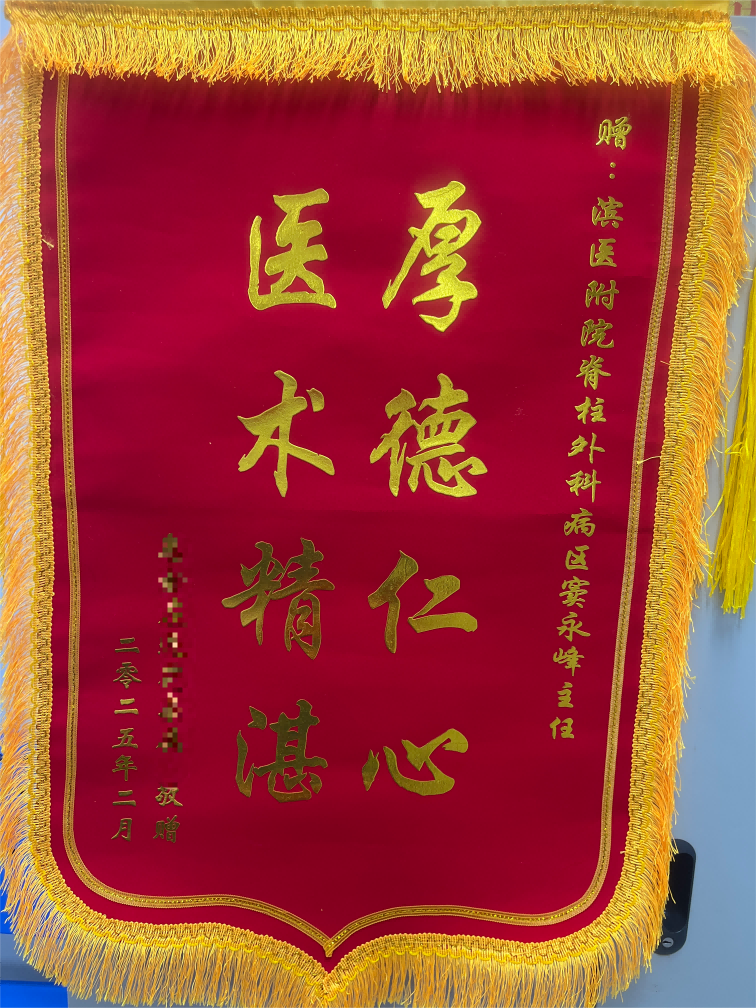 赠：滨医附院脊柱外科病区窦永峰主任
厚德仁心
医术精湛
敬赠
二零二五年二月